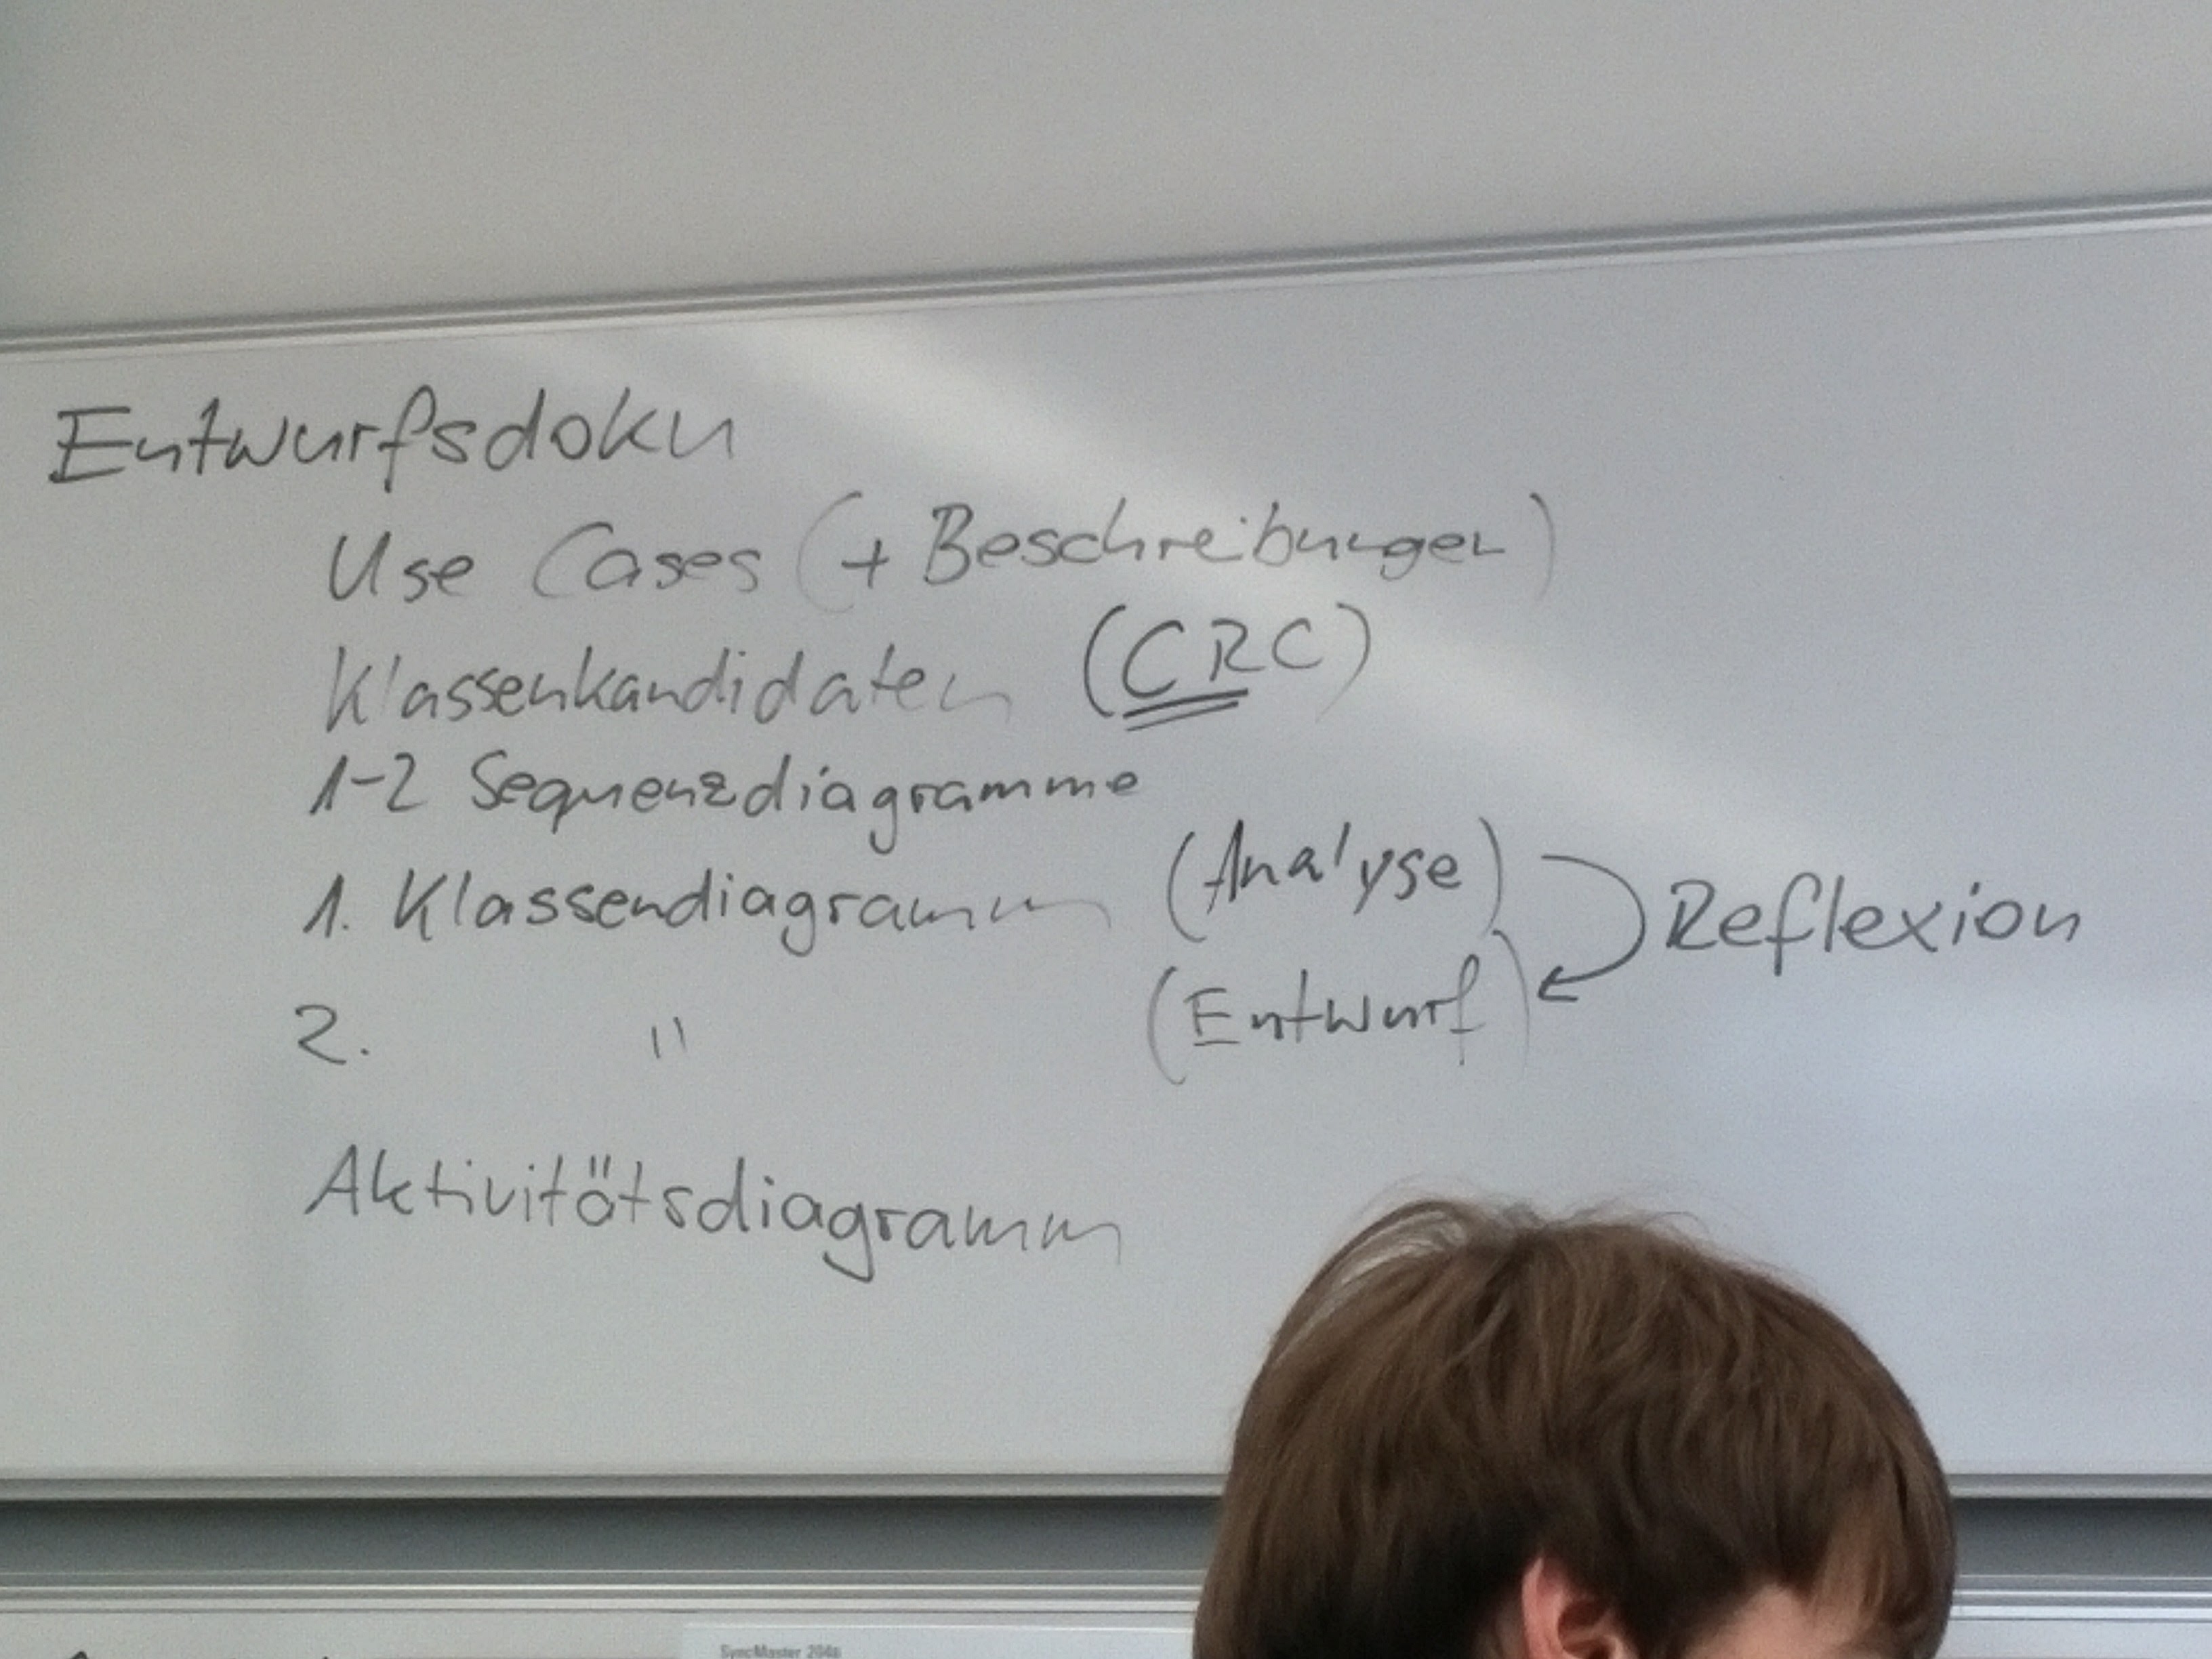 Entwurfsdoku
Use Cases (+ Beschreibungen)
Klassenkandidaten (CRC)
1-2 Sequenzdiagramme
1. Klassendiagramm (Analyse)
Reflexion
2. " (Entwurf)
Aktivitätsdiagramm
SyncMaster